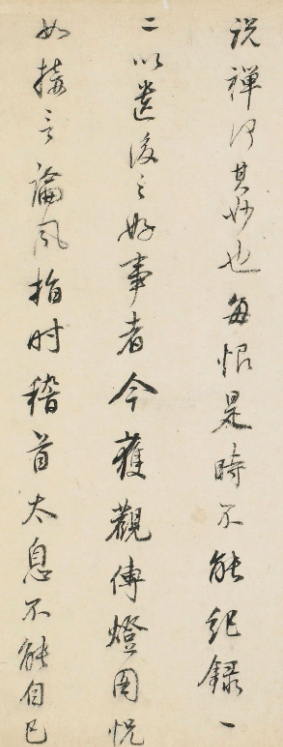 说禅何其妙也每恨是時不能紀録一
二以遺後之好事者今獲觀傳燈图恍
如接言論風指时稽首太息不能自已